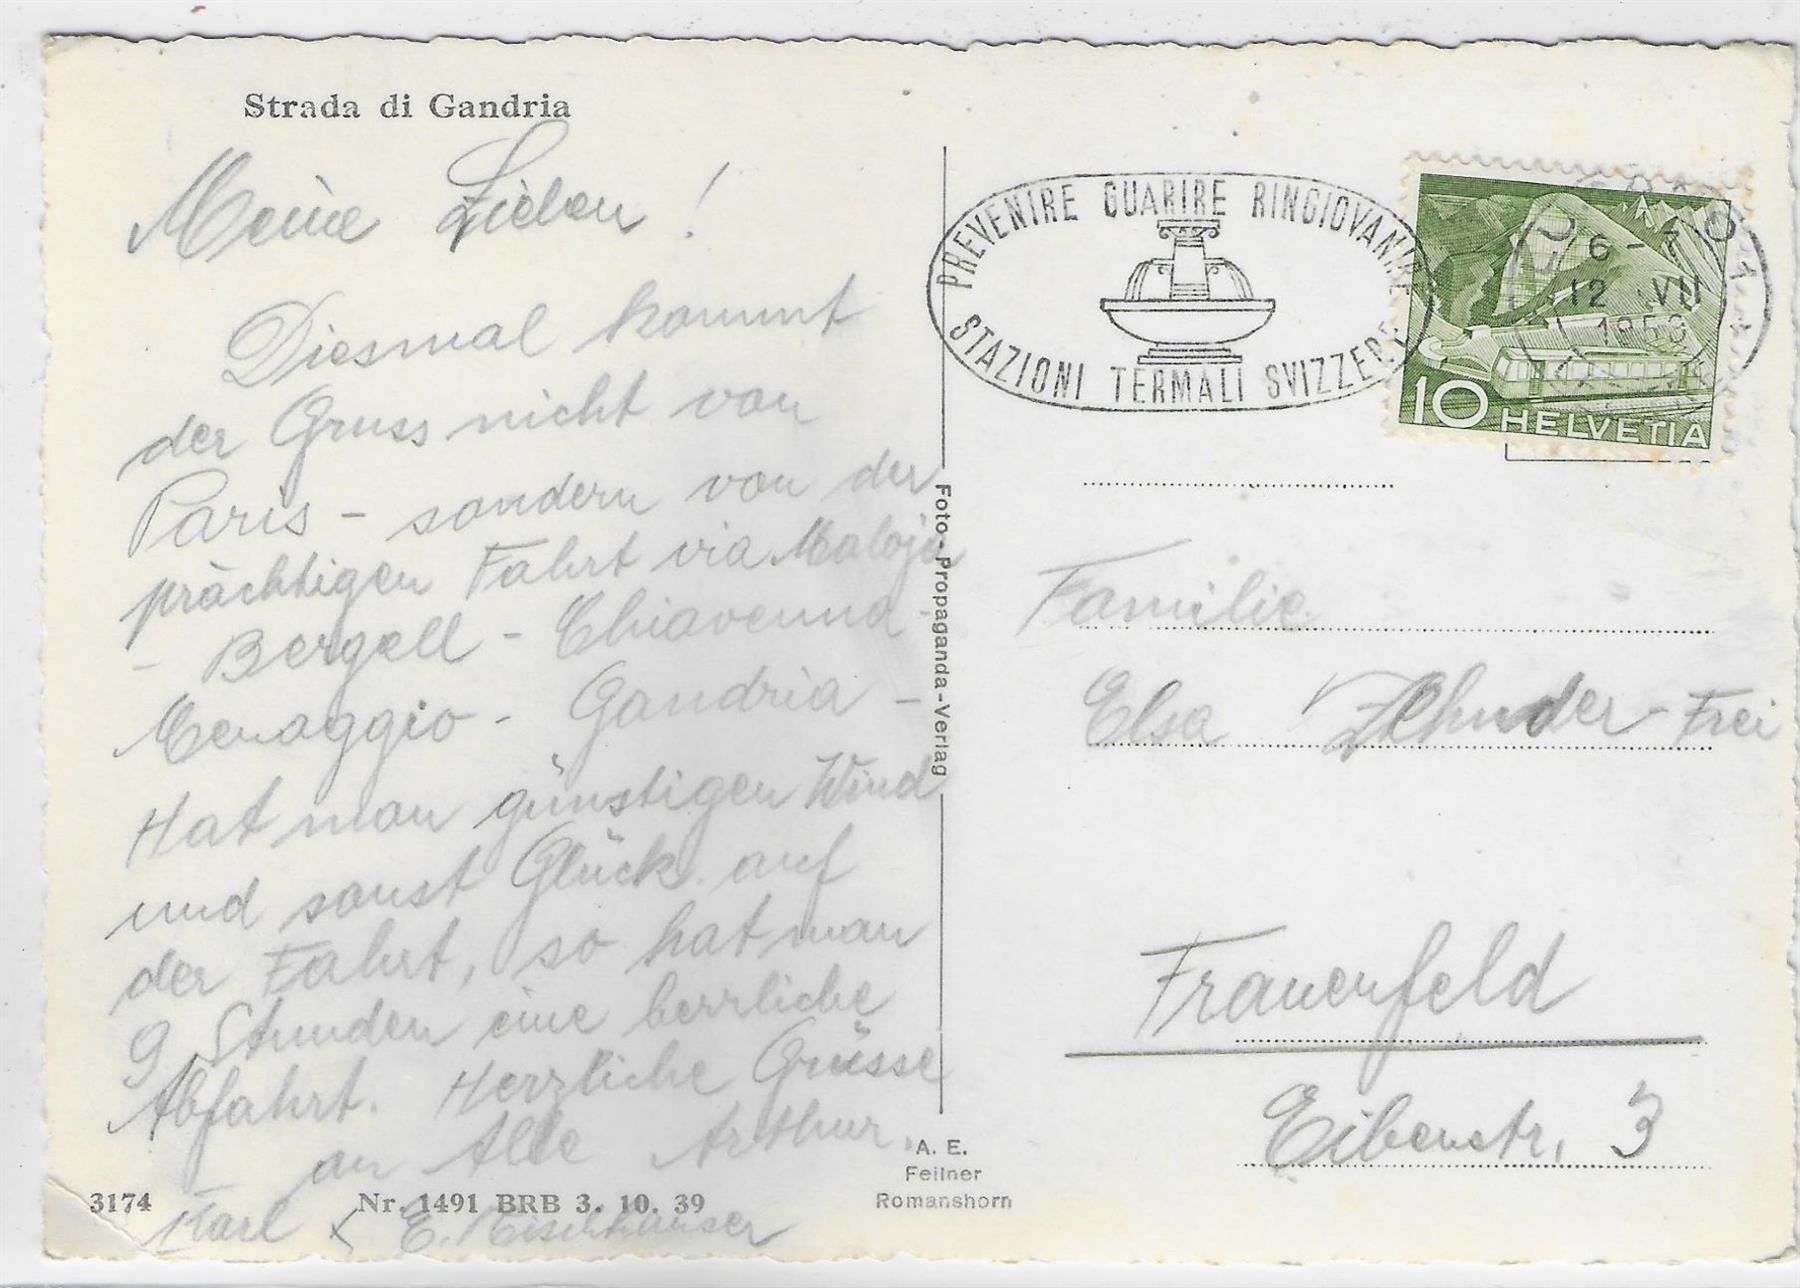 Strada di Gandria
Meine Lieben!
Diesmal kommt
der Gruss nicht von
Paris - sondern von der
prächtigen Fahrt via Maloja
- Bergell - Chiavenna -
Menaggio - Gandria -
Hat man günstigen Wind
und sonst Glück auf
der Fahrt, so hat man
9 Stunden eine herrliche
Abfahrt. Herzliche Grüsse
an Alle Arthur,
Karl
3174
Nr. 1491 BRB 3. 10. 39
Foto-Propaganda-Verlag
A. E.
Feilner
Romanshorn
PREVENIRE GUARIRE RINGIOVANIRE
STAZIONI TERMALI SVIZZERE
6-7
12 VII
10 HELVETIA
Familie
Elsa Zehnder-Frei
Frauenfeld
Eibenstr. 3